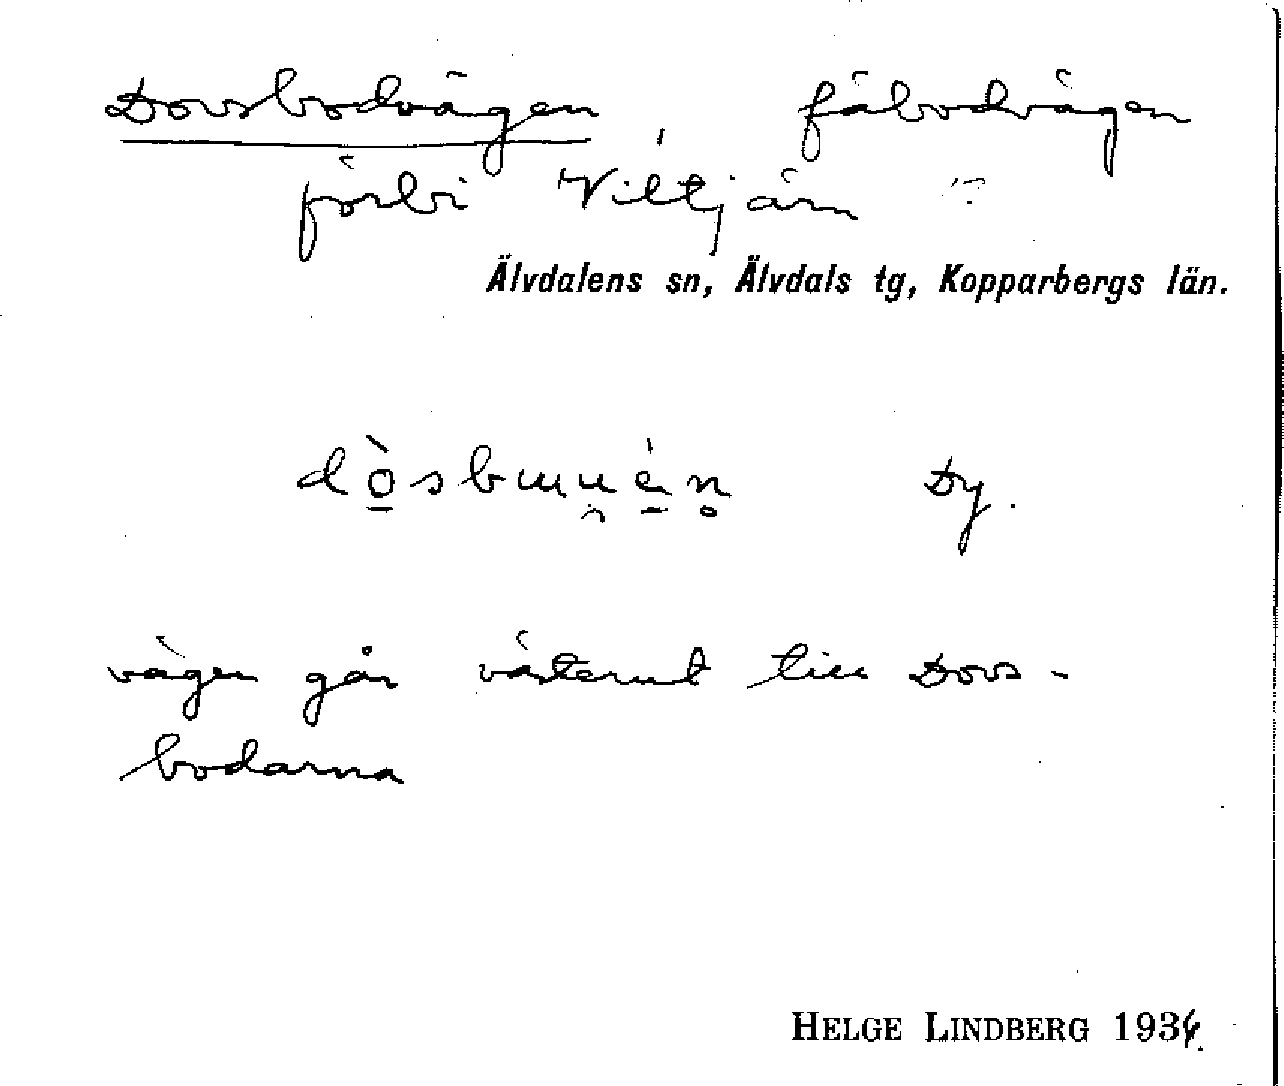 Dovsbodvägen fäbodvägen
förbi Viltjärn
Älvdalens sn, Älvdals tg, Kopparbergs län.
Dy.
vägen går västerut till Dovs-
bodarna
HELGE LINDBERG 1936